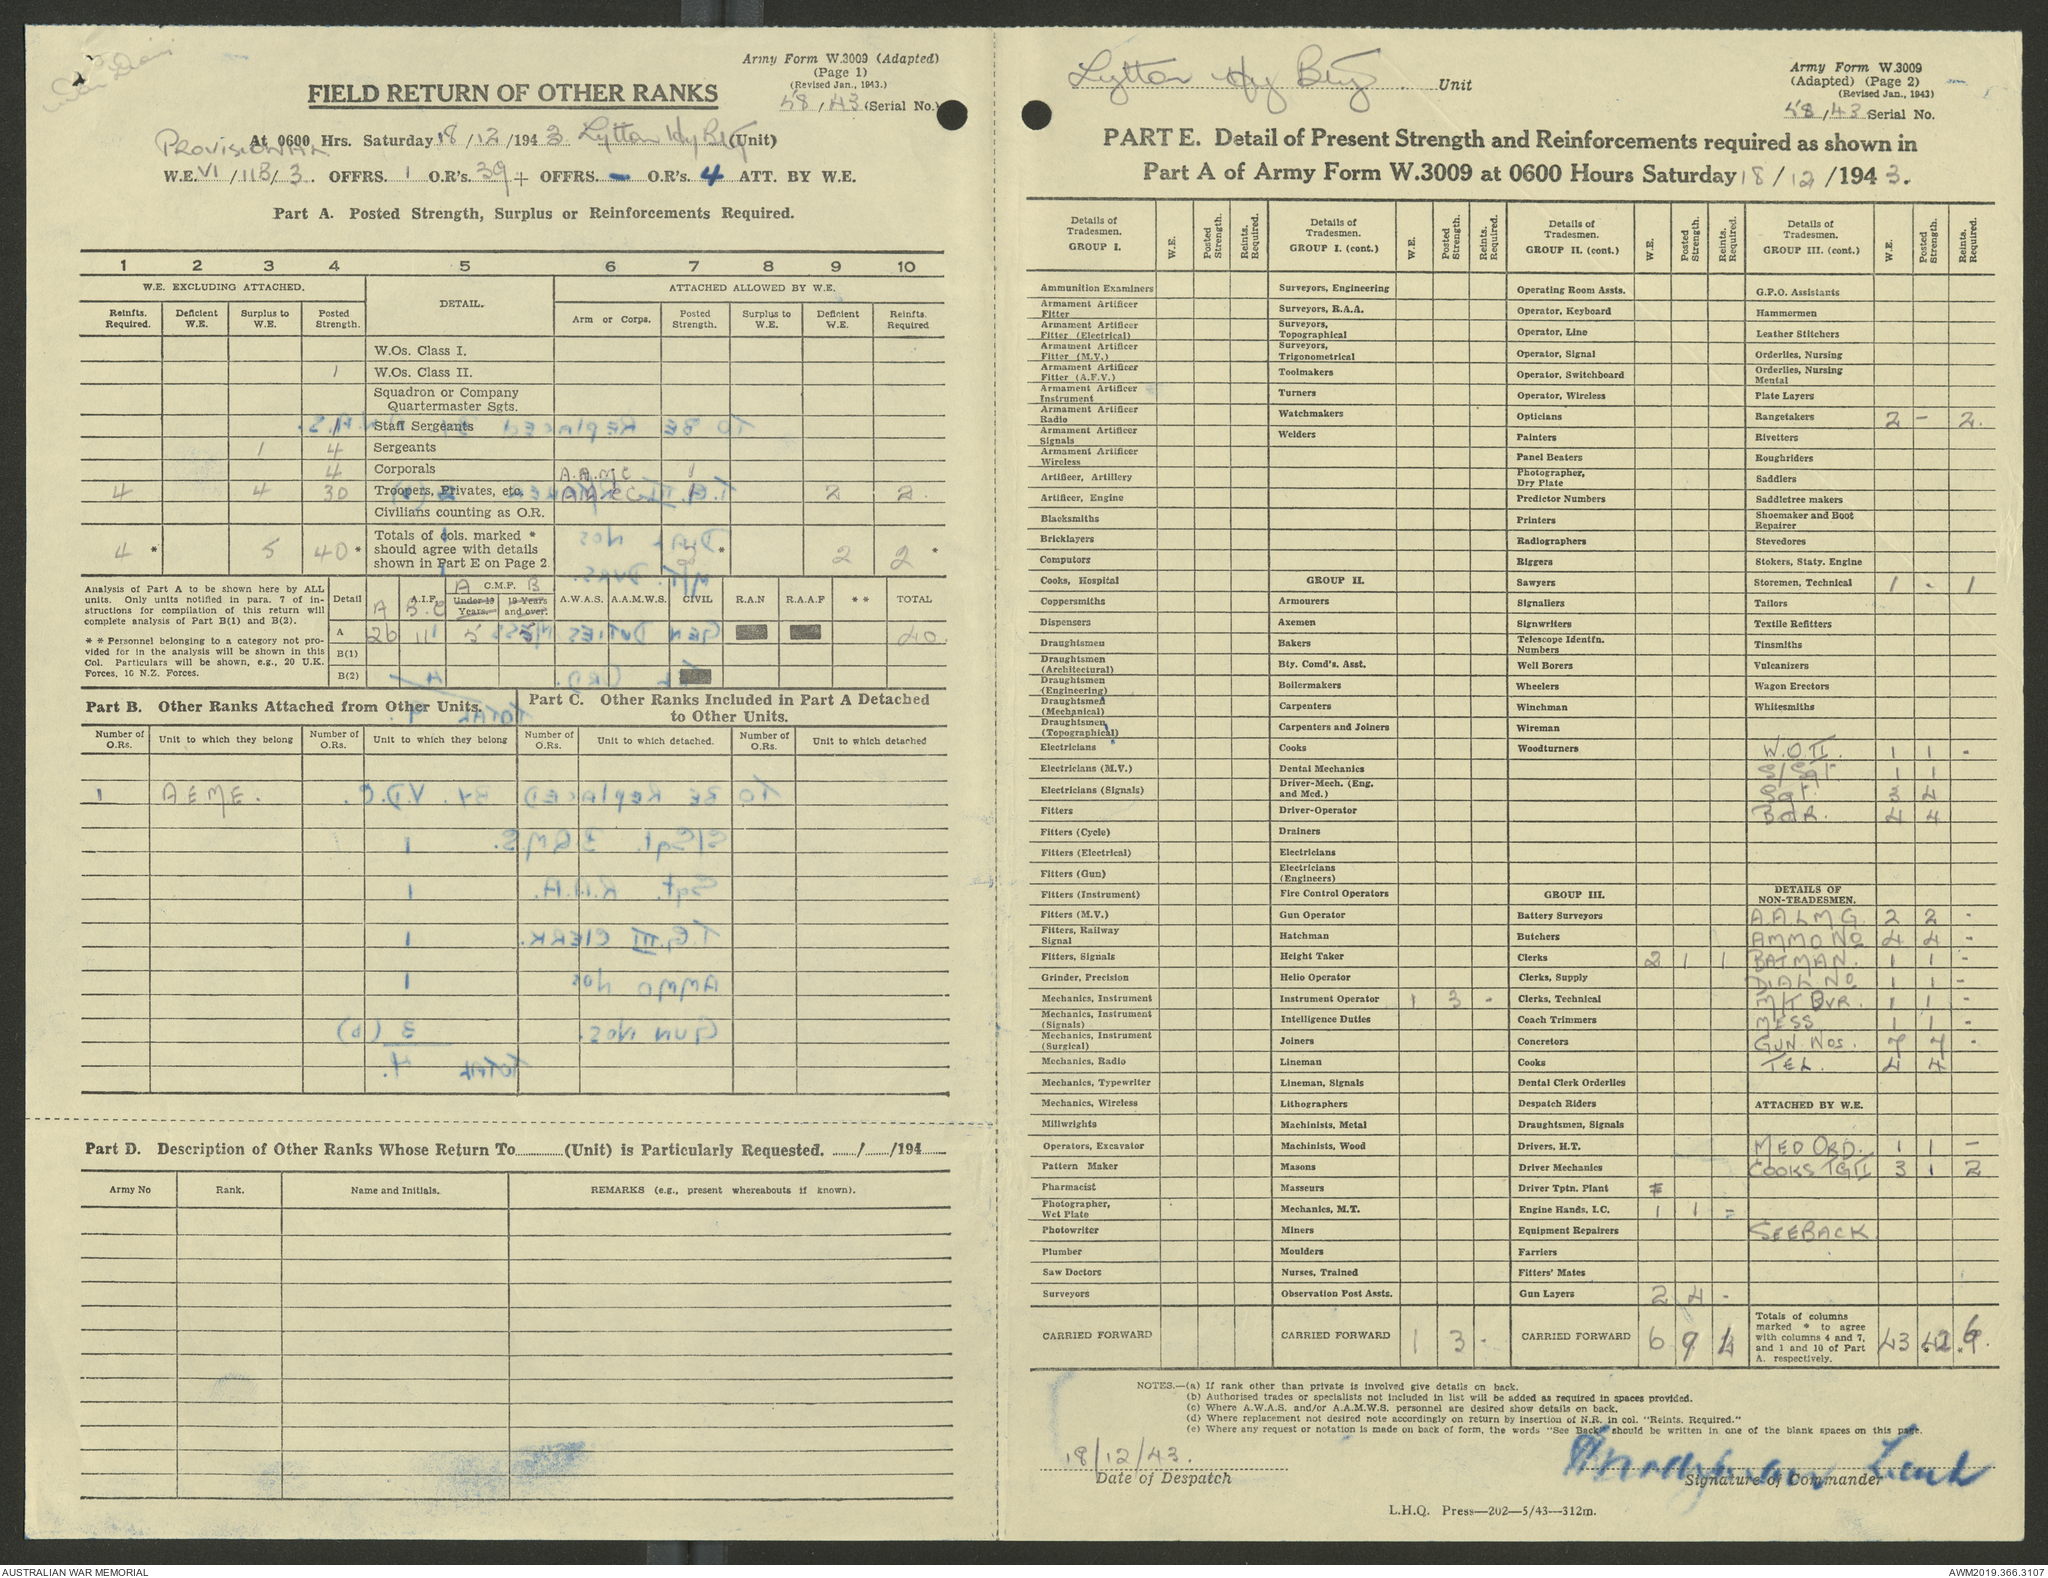 Army Form W.3009 (Adapted)
(Page 1)
(Revised Jan., 1943.)
58/43 (Serial No.)
FIELD RETURN OF OTHER RANKS
PROVISIONAL
At 0600 Hrs. Saturday 18/12/1943 Lytton Hy Bty (Unit)
W.E. VI/118/3. OFFRS. 1 O.R's. 39 + OFFRS. - O.R's. 4 ATT. BY W.E.
Part A. Posted Strength, Surplus or Reinforcements Required.
1 2 3 4 5 6 7 8 9 10
W.E. EXCLUDING ATTACHED. DETAIL. ATTACHED ALLOWED BY W.E.
Reinfts. Required. Deficient W.E. Surplus to W.E. Posted Strength. Arm or Corps. Posted Strength. Surplus to W.E. Deficient W.E. Reinfts. Required
W.Os. Class I.
1 W.Os. Class II.
Squadron or Company Quartermaster Sgts.
1 Staff Sergeants
1 4 Sergeants
4 Corporals A.A.M.C 1
4 4 30 Troopers, Privates, etc. A.A.S.C 1 2 2
Civilians counting as O.R.
4 * 5 40 * Totals of cols. marked * should agree with details shown in Part E on Page 2. 2 * 2 2 *
Analysis of Part A to be shown here by ALL units. Only units notified in para. 7 of instructions for compilation of this return will complete analysis of Part B(1) and B(2).
* * Personnel belonging to a category not provided for in the analysis will be shown in this Col. Particulars will be shown, e.g., 20 U.K. Forces, 10 N.Z. Forces.
Detail A.I.F. C.M.F. A.W.A.S. A.A.M.W.S. CIVIL R.A.N R.A.A.F * * TOTAL
A B.C A B
Under 19 Years. 19 Years and over.
A 26 111 5 40
B(1)
B(2)
Part B. Other Ranks Attached from Other Units.
Part C. Other Ranks Included in Part A Detached to Other Units.
Number of O.Rs. Unit to which they belong Number of O.Rs. Unit to which they belong Number of O.Rs. Unit to which detached. Number of O.Rs. Unit to which detached
1 AEME.
Part D. Description of Other Ranks Whose Return To (Unit) is Particularly Requested. / /194
Army No Rank. Name and Initials. REMARKS (e.g., present whereabouts if known).
Lytton Hy Bty. Unit
Army Form W.3009
(Adapted) (Page 2)
(Revised Jan., 1943)
58/43 Serial No.
PART E. Detail of Present Strength and Reinforcements required as shown in
Part A of Army Form W.3009 at 0600 Hours Saturday 18/12/1943.
Details of Tradesmen. GROUP I. W.E. Posted Strength. Reints. Required.
Ammunition Examiners
Armament Artificer Fitter
Armament Artificer Fitter (Electrical)
Armament Artificer Fitter (M.V.)
Armament Artificer Fitter (A.F.V.)
Armament Artificer Instrument
Armament Artificer Radio
Armament Artificer Signals
Armament Artificer Wireless
Artificer, Artillery
Artificer, Engine
Blacksmiths
Bricklayers
Computors
Cooks, Hospital
Coppersmiths
Dispensers
Draughtsmen
Draughtsmen (Architectural)
Draughtsmen (Engineering)
Draughtsmen (Mechanical)
Draughtsmen (Topographical)
Electricians
Electricians (M.V.)
Electricians (Signals)
Fitters
Fitters (Cycle)
Fitters (Electrical)
Fitters (Gun)
Fitters (Instrument)
Fitters (M.V.)
Fitters, Railway Signal
Fitters, Signals
Grinder, Precision
Mechanics, Instrument
Mechanics, Instrument (Signals)
Mechanics, Instrument (Surgical)
Mechanics, Radio
Mechanics, Typewriter
Mechanics, Wireless
Millwrights
Operators, Excavator
Pattern Maker
Pharmacist
Photographer, Wet Plate
Photowriter
Plumber
Saw Doctors
Surveyors
CARRIED FORWARD
Details of Tradesmen. GROUP I. (cont.) W.E. Posted Strength. Reints. Required.
Surveyors, Engineering
Surveyors, R.A.A.
Surveyors, Topographical
Surveyors, Trigonometrical
Toolmakers
Turners
Watchmakers
Welders
GROUP II.
Armourers
Axemen
Bakers
Bty. Comd's. Asst.
Boilermakers
Carpenters
Carpenters and Joiners
Cooks
Dental Mechanics
Driver-Mech. (Eng. and Med.)
Driver-Operator
Drainers
Electricians
Electricians (Engineers)
Fire Control Operators
Gun Operator
Hatchman
Height Taker
Helio Operator
Instrument Operator 1 3 -
Intelligence Duties
Joiners
Lineman
Lineman, Signals
Lithographers
Machinists, Metal
Machinists, Wood
Masons
Masseurs
Mechanics, M.T.
Miners
Moulders
Nurses, Trained
Observation Post Assts.
CARRIED FORWARD 1 3 -
Details of Tradesmen. GROUP II. (cont.) W.E. Posted Strength. Reints. Required.
Operating Room Assts.
Operator, Keyboard
Operator, Line
Operator, Signal
Operator, Switchboard
Operator, Wireless
Opticians
Painters
Panel Beaters
Photographer, Dry Plate
Predictor Numbers
Printers
Radiographers
Riggers
Sawyers
Signallers
Signwriters
Telescope Identfn. Numbers
Well Borers
Wheelers
Winchman
Wireman
Woodturners
GROUP III.
Battery Surveyors
Butchers
Clerks 2 1 1
Clerks, Supply
Clerks, Technical
Coach Trimmers
Concretors
Cooks
Dental Clerk Orderlies
Despatch Riders
Draughtsmen, Signals
Drivers, H.T.
Driver Mechanics
Driver Tptn. Plant
Engine Hands, I.C. 1 1 -
Equipment Repairers
Farriers
Fitters' Mates
Gun Layers 2 4 -
CARRIED FORWARD 6 9 4
Details of Tradesmen. GROUP III. (cont.) W.E. Posted Strength. Reints. Required.
G.P.O. Assistants
Hammermen
Leather Stitchers
Orderlies, Nursing
Orderlies, Nursing Mental
Plate Layers
Rangetakers 2 - 2.
Rivetters
Roughriders
Saddlers
Saddletree makers
Shoemaker and Boot Repairer
Stevedores
Stokers, Staty. Engine
Storemen, Technical 1 - 1
Tailors
Textile Refitters
Tinsmiths
Vulcanizers
Wagon Erectors
Whitesmiths
W.O.II. 1 1 -
S/Sgt 1 1
Sgt. 3 4
BdR. 4 4
DETAILS OF NON-TRADESMEN.
A.A.L.M.G. 2 2 -
AMMO No 4 4 -
BATMAN. 1 1 -
DIAL No 1 1 -
M/T DVR. 1 1 -
MESS 1 1 -
GUN NOS. 7 7 -
TEL. 4 4
ATTACHED BY W.E.
MED ORD. 1 1 -
COOKS TGII 3 1 2
SEE BACK
Totals of columns marked * to agree with columns 4 and 7, and 1 and 10 of Part A. respectively. 43 42 6
NOTES.—(a) If rank other than private is involved give details on back.
(b) Authorised trades or specialists not included in list will be added as required in spaces provided.
(c) Where A.W.A.S. and/or A.A.M.W.S. personnel are desired show details on back.
(d) Where replacement not desired note accordingly on return by insertion of N.R. in col. "Reints. Required."
(e) Where any request or notation is made on back of form, the words "See Back" should be written in one of the blank spaces on this page.
18/12/43.
Date of Despatch
Lieut
Signature of Commander
L.H.Q. Press—202—5/43—312m.
AUSTRALIAN WAR MEMORIAL
AWM2019.366.3107